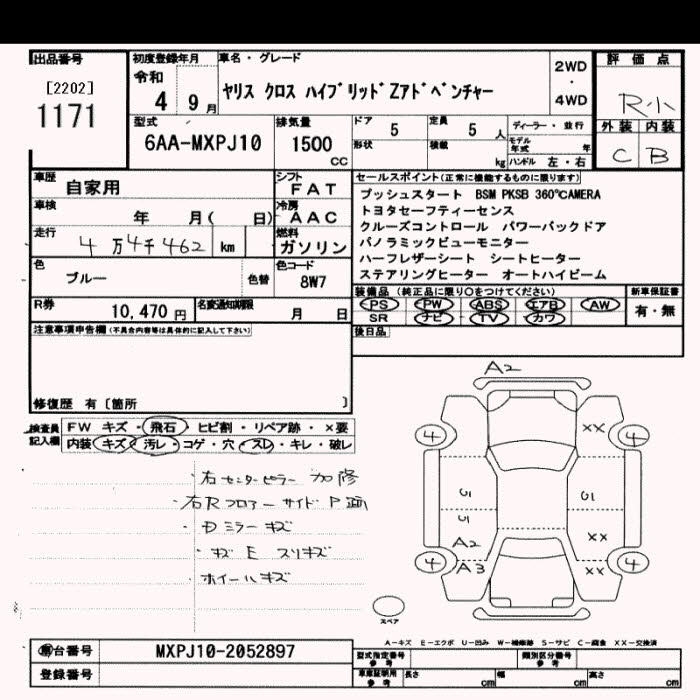 出品番号 初度登録年月 車名・グレード 2WD ・ 4WD 評価点
[2202] 令和 ヤリス クロス ハイブリッドZアドベンチャー R小
1171 4 9月
型式 排気量 ドア 5 定員 5 人 ディーラー・並行 外装 内装
6AA-MXPJ10 1500 cc 形状 積載 kg モデル年式 年 C B
ハンドル 左・右
車歴 自家用 シフト FAT セールスポイント(正常に機能するものに限ります)
車検 年 月( 日) 冷房 AAC プッシュスタート BSM PKSB 360℃AMERA
トヨタセーフティーセンス
走行 4万4千462 km 燃料 ガソリン クルーズコントロール パワーバックドア
パノラミックビューモニター
色 ブルー 色替 色コード 8W7 ハーフレザーシート シートヒーター
ステアリングヒーター オートハイビーム
R券 10,470円 名変通知期限 月 日 装備品(純正品に限り○をつけてください) 新車保証書
PS PW ABS エアB AW 有・無
SR ナビ TV カワ
注意事項申告欄(不具合内容等は具体的に記入して下さい) 後日品
修復歴 有[箇所 ]
検査員記入欄 FW キズ・飛石 ヒビ割・リペア跡・×要
内装 キズ・汚レ・コゲ・穴・スレ・キレ・破レ
A2
4 XX 4
U1 U1
U1
A2 XX
4 A3 XX 4
・右センターピラー 加修
・右Rフロアーサイド P
・Dミラーキズ
・キズ E スリキズ
・ホイールキズ
スペア
A-キズ E-エクボ U-凹み W-補修跡 S-サビ C-腐食 XX-交換済
車台番号 MXPJ10-2052897 型式指定番号 参考 類別区分番号 参考
登録番号 車庫証明用 参考 長さ cm 幅 cm 高さ cm